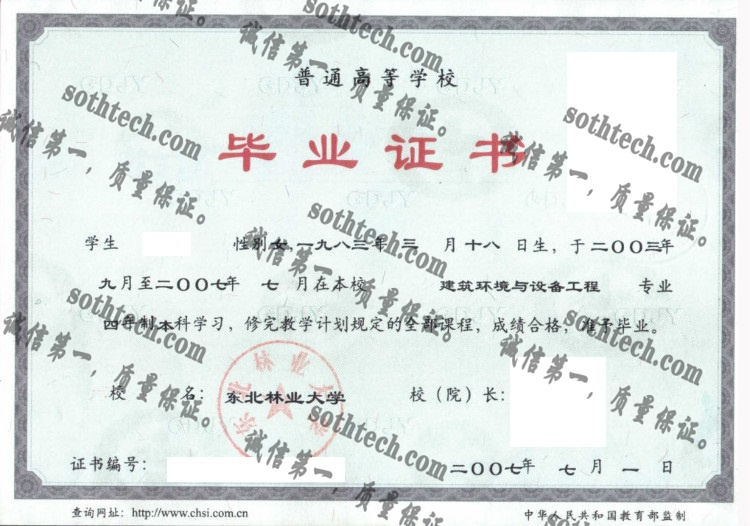 普通高等学校
毕业证书
学生 性别 女, 一九八三年 三 月 十八 日生, 于 二〇〇三年
九月至二〇〇七年 七 月在本校 建筑环境与设备工程 专业
四年制本科学习, 修完教学计划规定的全部课程, 成绩合格, 准予毕业。
校 名: 东北林业大学 校（院）长:
东北林业大学
证书编号: 二〇〇七年 七 月 一 日
查询网址: http://www.chsi.com.cn 中华人民共和国教育部监制
sothtech.com
诚信第一，质量保证。
sothtech.com
诚信第一，质量保证。
sothtech.com
诚信第一，质量保证。
sothtech.com
诚信第一，质量保证。
sothtech.com
诚信第一，质量保证。
sothtech.com
诚信第一，质量保证。
sothtech.com
诚信第一，质量保证。